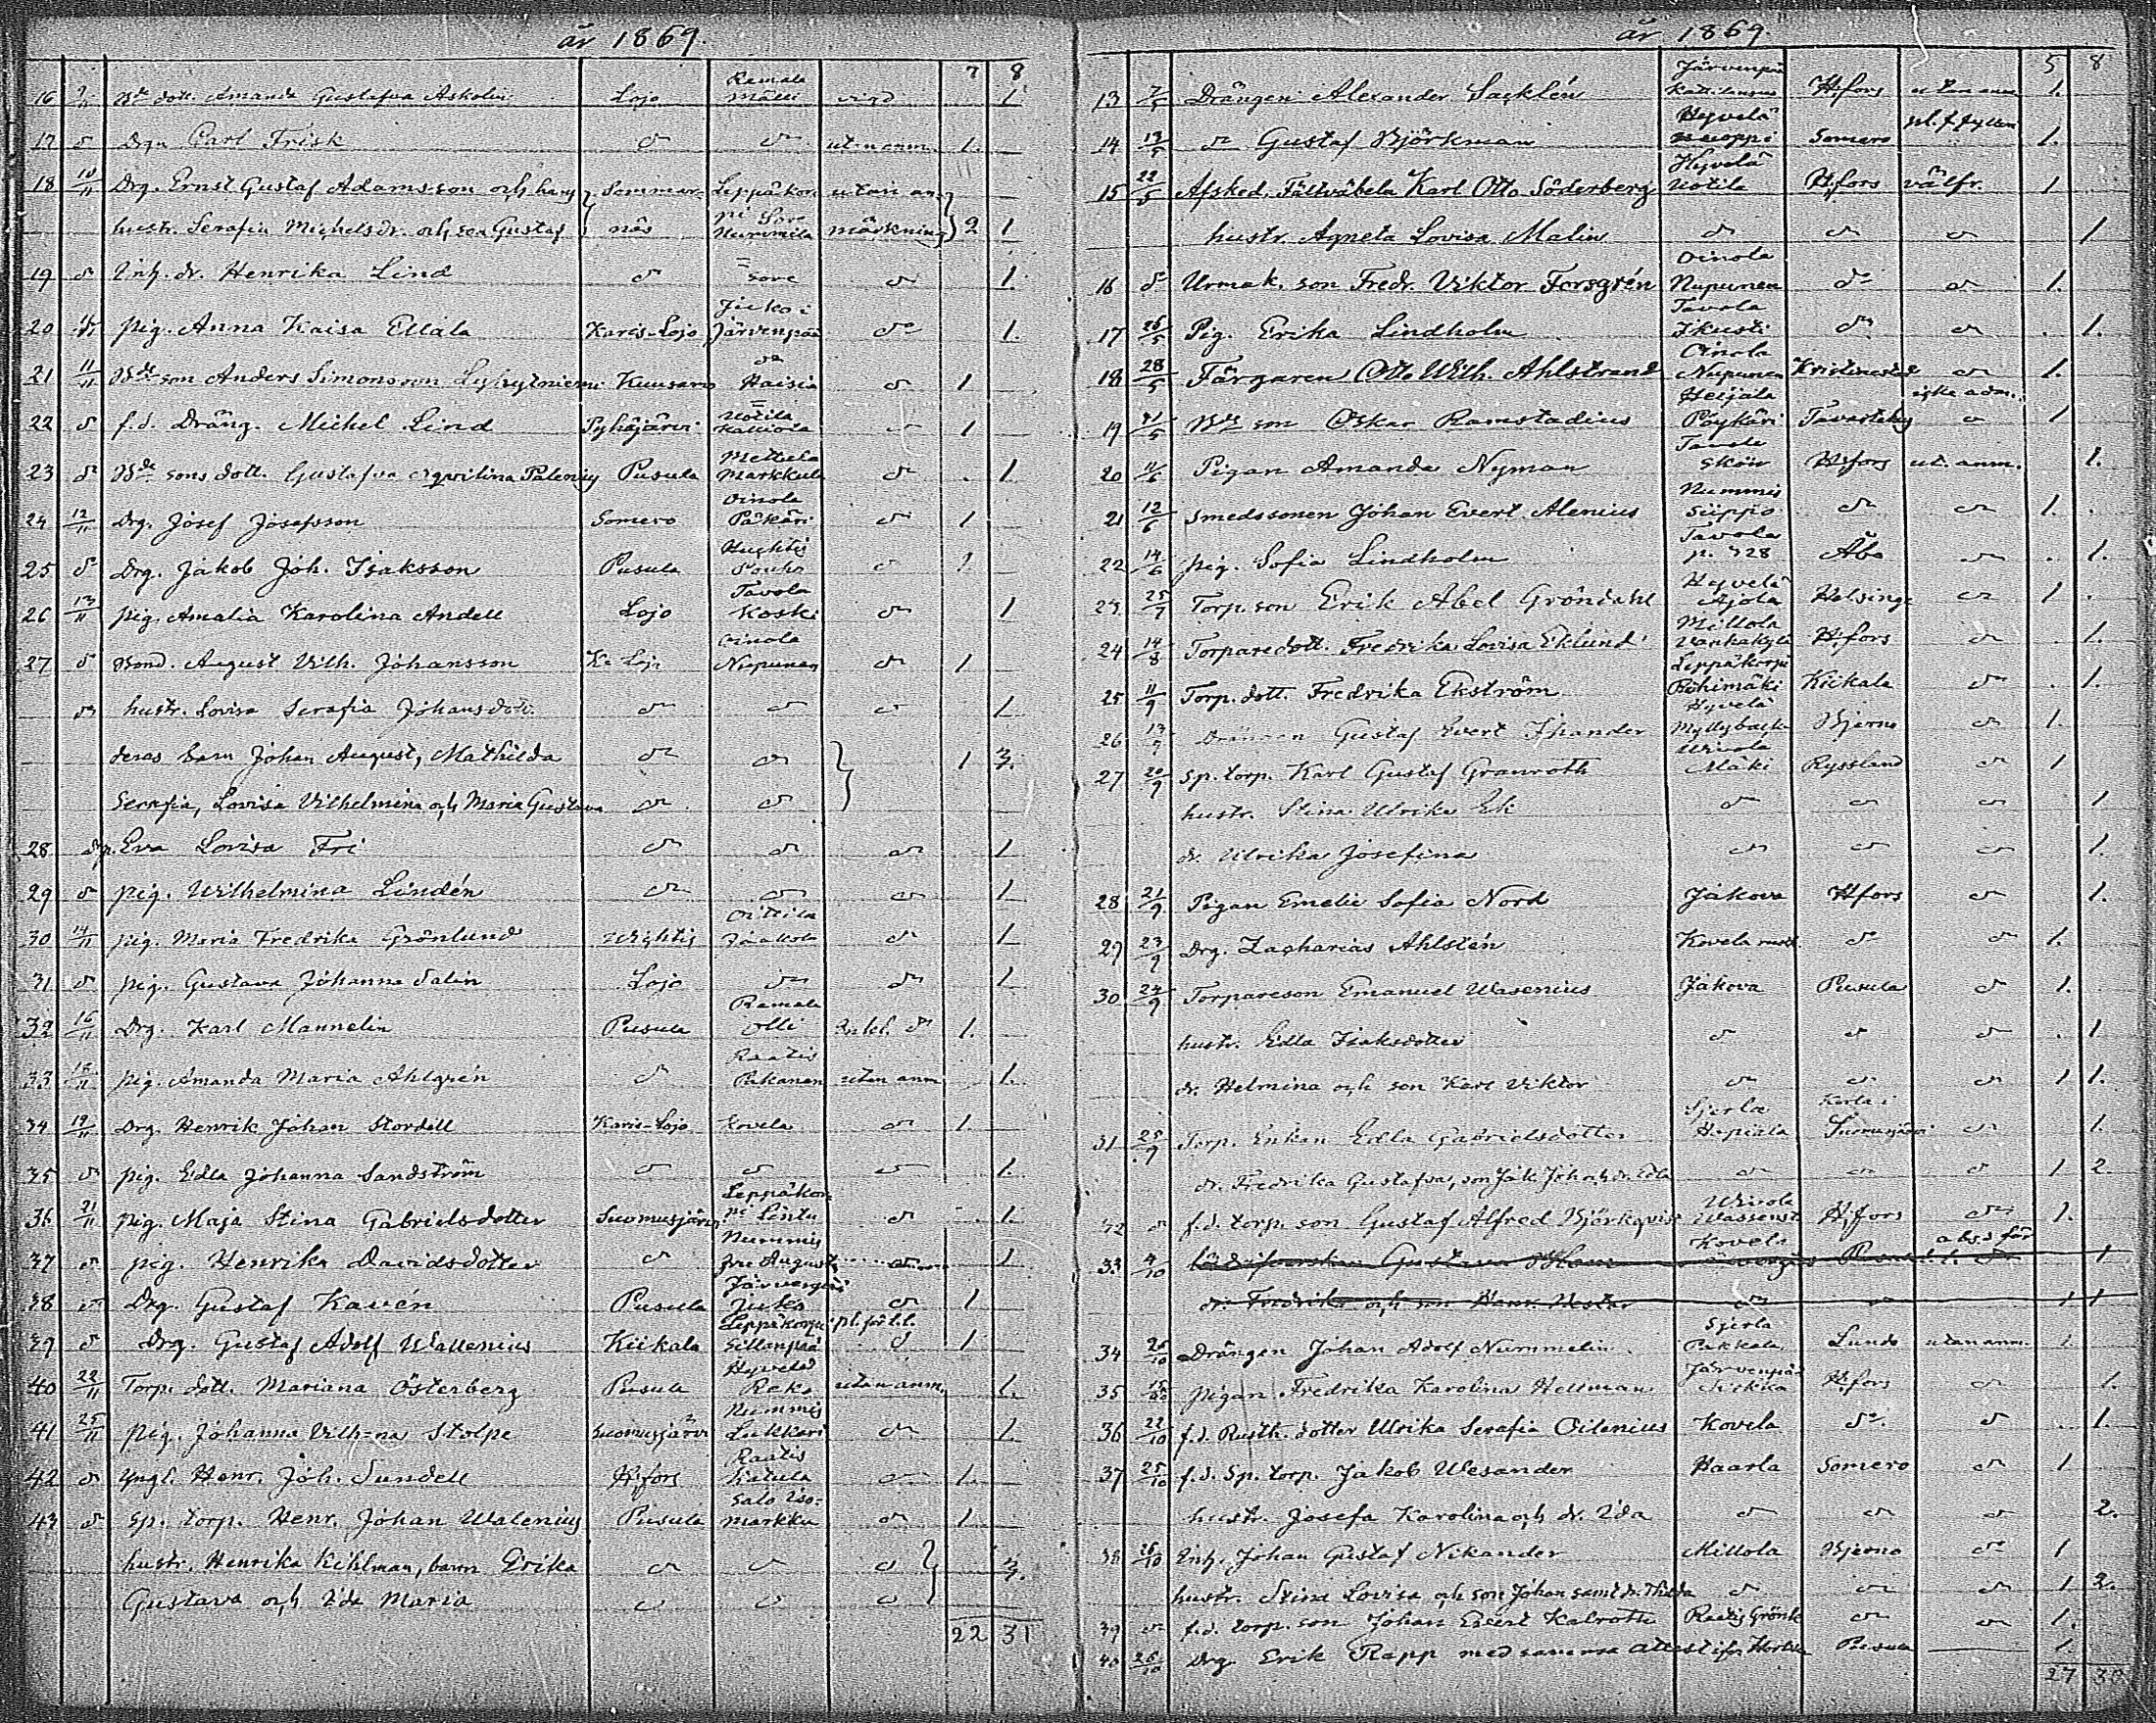 år 1869.
7 8
16 Bde dott. Amanda Gustafva Askolin Lojo Remala Mälli vigd 1
17 do Drgn Carl Frisk do do utan anm. 1.
18 10/11 Drg. Ernst Gustaf Adamsson och hans Sammar- Leppäkor- utan an-
hustr. Serafia Michelsdr. och son Gustaf näs pi Sore Nummila märkning 2 1
19 do Inh. dr. Henrika Lind do Sore do 1.
20 pig. Anna Kaisa Ellala Karis-Lojo Juko i Järvenpää do 1.
21 11/11 Bde son Anders Simonsson Lyhytniemi Kuusamo Haisia do 1
22 do f.d. Dräng. Michel Lind Pyhäjärvi Uotila Kalliola do 1
23 do Bde sons dott. Gustafva Aqvilina Palenius Pusula Mettula Markkula do 1
24 12/11 Drg. Josef Josefsson Somero Oinola Päkäri do 1
25 do Drg. Jakob Joh. Isaksson Pusula Huhtis Souho do 1
26 13/11 pig. Amalia Karolina Andell Lojo Tavola Koski do 1
27 do Bond. August Vilh. Johansson Ka Lojo Oinola Nupunen do 1
do hustr. Lovisa Serafia Johansdotr. do do do 1
deras barn Johan August, Mathilda do do 1 3.
Serafia, Lovisa Vilhelmina och Maria Gustava do do
28 do p. Eva Lovisa Fri do do do 1
29 do pig. Wilhelmina Lindén do do do 1
30 14/11 pig. Maria Fredrika Grönlund Wichtis Oittila Jaakola do 1
31 do pig. Gustava Johanna Salin Lojo do do 1
32 16/11 Drg. Karl Mannelin Pusula Remala Olli enkl. do 1.
33 18/11 pig. Amanda Maria Ahlgrén do Raatis Pakanen utan anm 1.
34 19/11 Drg. Henrik Johan Stordell Karis-Lojo Kovela do 1.
35 do pig. Edla Johanna Sandström do do do 1.
36 21/11 pig. Maja Stina Gabrielsdotter Suomusjärvi Leppäkor- pi Lintu do 1.
37 do pig. Henrika Davidsdotter do Nummis pre August do 1
38 do Drg. Gustaf Kavén Pusula Järvenpää Juko do 1
39 do Drg. Gustaf Adolf Wallenius Kiikala Leppäkorpi Sillanpää do 1
40 22/11 Torp. dott. Mariana Österberg Pusula Hyvelä Reko utan anm. 1.
41 25/11 pig. Johanna Vilh-na Stolpe Suomusjärvi Nummis Lukkari do 1
42 do Yngl. Henr. Joh. Sundell H.fors Raatis do 1.
43 do Sp. torp. Henr. Johan Walenius Pusula Salo Iso- markku do 1
hustr. Henrika Kihlman, barn Erika do do do 3.
Gustava och Ida Maria do do do
22 31
år 1869.
5 8
13 7/5 Drängen Alexander Sacklén Järvenpää H.fors utan anm 1.
14 13/5 do Gustaf Björkman Hyvelä Somero 1.
15 22/5 Afsked. Fältväbeln Karl Otto Söderberg Hyvelä Uotila H.fors välfr. 1
hustr. Agneta Lovisa Malin do do do 1
16 do Urmak. son Fredr. Viktor Forsgrén Oinola Nupunen do do 1.
17 26/5 Pig. Erika Lindholm Tavola Ikusti do do 1.
18 28/5 Färgaren Otto Wilh. Ahlstrand Oinola Nupunen Kristinestad do 1.
19 31/5 Bde son Oskar Ramstadius Heijala Pöykäri Tavastehus do 1
20 11/6 Pigan Amanda Nyman Tavola Skön H.fors ut. anm. 1.
21 12/6 Smedssonen Johan Evert Alenius Nummis Siippo do do 1.
22 14/6 pig. Sofia Lindholm Tavola p. 328 Åbo do 1.
23 25/7 Torp. son Erik Abel Gröndahl Hyvelä Ajola Helsinge do 1.
24 14/8 Torparedott. Fredrika Lovisa Eklund Millola Vanhakylä H.fors do 1.
25 11/9 Torp. dott. Fredrika Ekström Leppäkorpi Riihimäki Kiikala do 1.
26 13/9 Drängen Gustaf Evert Ihander Hyvelä Myllyback Bjerno do 1.
27 20/9 Sp. torp. Karl Gustaf Granroth Mäki Ryssland do 1
hustr. Stina Ulrika Ek do do do 1
dr. Ulrika Josefina do do do 1.
28 21/9 Pigan Emelie Sofia Nord Jakova H.fors do 1.
29 23/9 Drg. Zacharias Ahlstén Kovela rusth. do do 1.
30 24/9 Torpareson Emanuel Wasenius Jakova Pusula do 1.
hustr. Edla Isaksdotter do do do 1
dr. Helmina och son Karl Viktor do do do 1 1.
31 25/9 Torp. Enkan Edla Gabrielsdotter Sjerla Hopiala Suomusjärvi do 1.
dr. Fredrika Gustafva, son Jak. Joh. och dr. Edla do do do 1 2.
32 do f.d. torp. son Gustaf Alfred Björkqvist H.fors do 1.
33 4/10 Gustava Kovela 1
dr. Fredrika och son Henr. do do 1 1
34 Drängen Johan Adolf Nummelin Sjerla Pakkala Lundo utan anm. 1.
35 pigan Fredrika Karolina Hellman Järvenpää H.fors do 1.
36 22/10 f.d. Rusth. dotter Ulrika Serafia Oilenius Kovela do do 1.
37 25/10 f.d. Sp. torp. Jakob Wesander Haarla Somero do 1
hustr. Josefa Karolina och dr. Ida do do do 2.
38 26/10 Inh. Johan Gustaf Nikander Millola Bjerno do 1
hustr. Stina Lovisa och son Johan samt dr. Thilda do do do 1 2.
39 do f.d. torp. son Johan Evert Kalroth Raatis Grönk do do 1.
40 26/10 Drg. Erik Rapp med samma attest Pusula 1
27 30